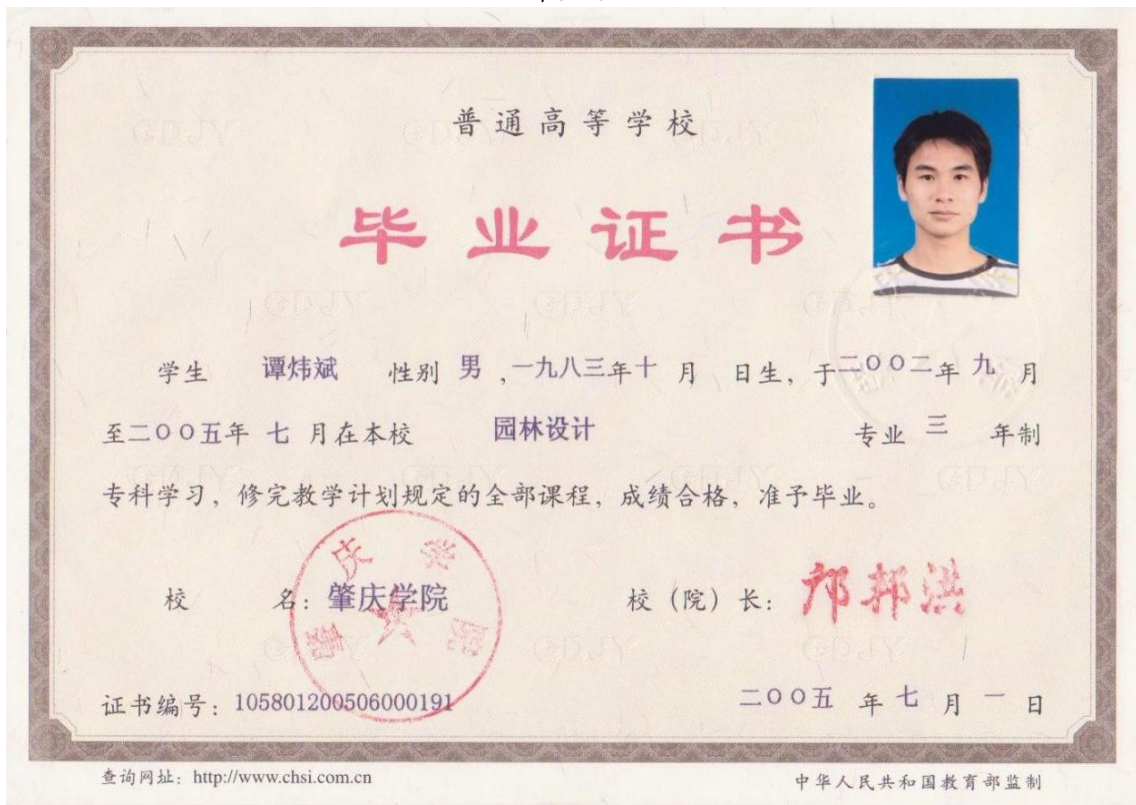 普通高等学校
毕业证书
学生 谭炜斌 性别 男 ,一九八三年十 月 日生, 于二〇〇二年 九 月
至二〇〇五年 七 月在本校 园林设计 专业 三 年制
专科学习, 修完教学计划规定的全部课程, 成绩合格, 准予毕业。
校 名: 肇庆学院 校 (院) 长:
肇庆学院
证书编号: 105801200506000191 二〇〇五 年 七 月 一 日
查询网址: http://www.chsi.com.cn 中华人民共和国教育部监制